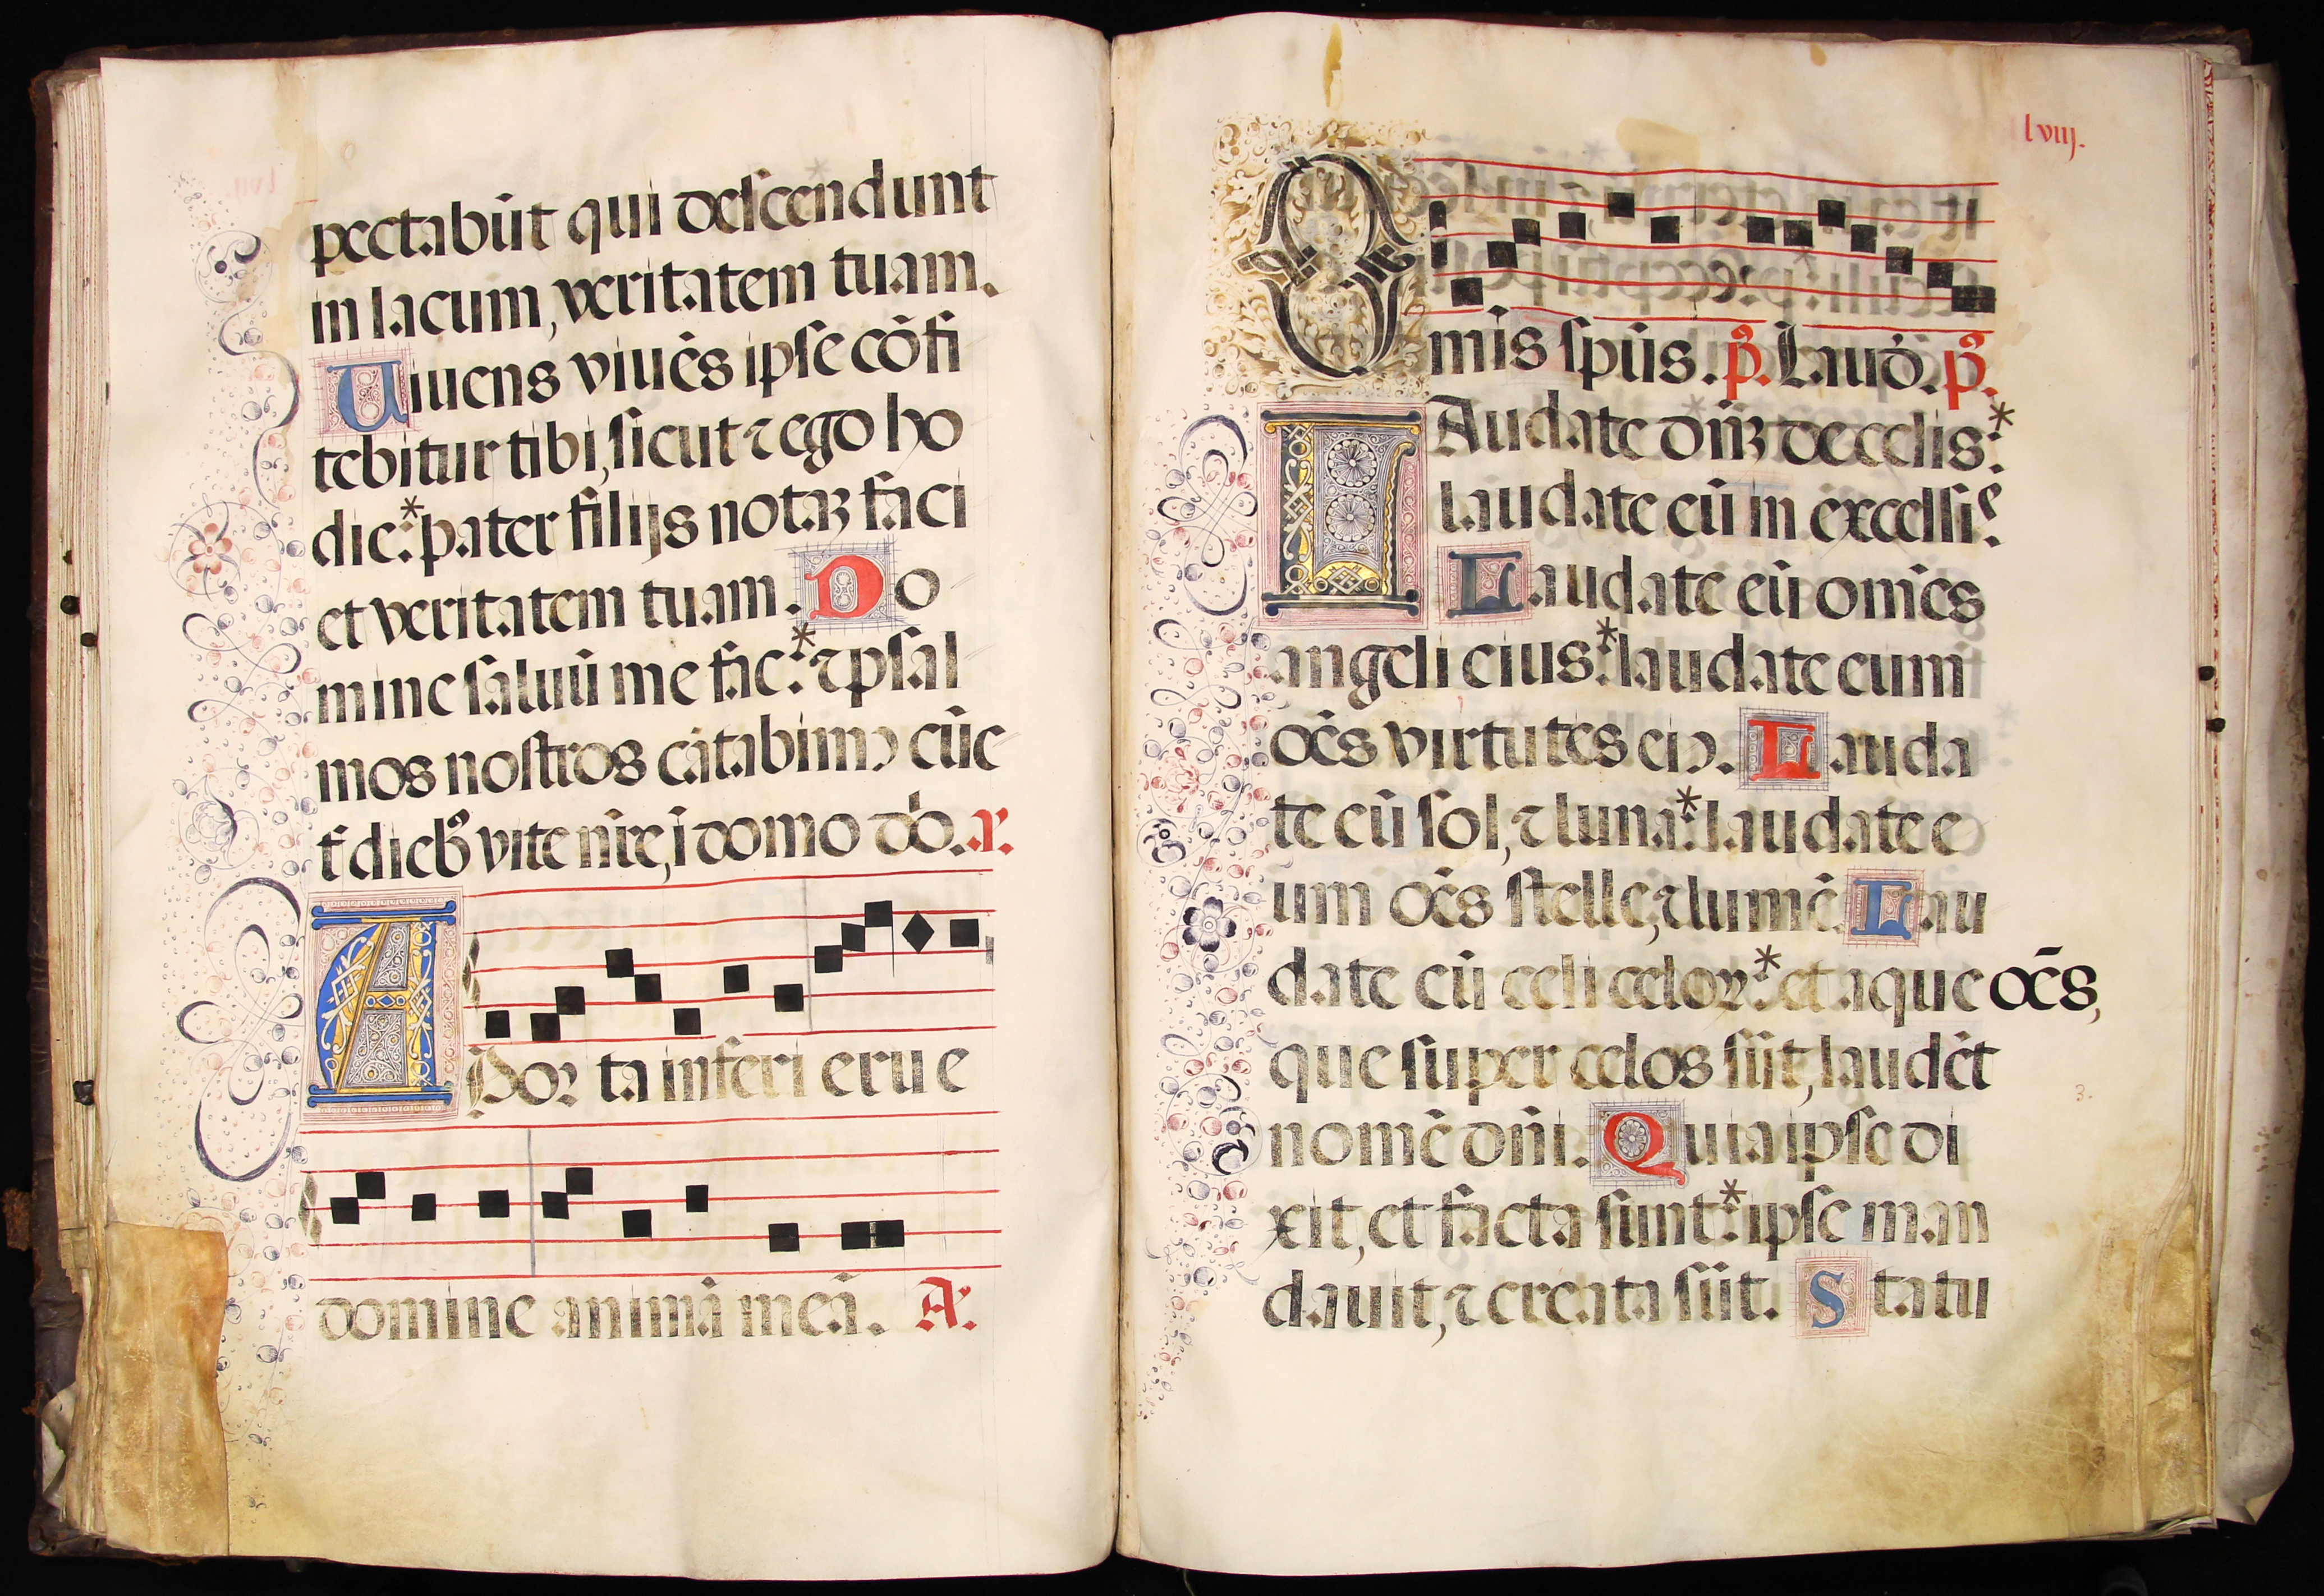 pectabūt qui descendunt
in lacum, veritatem tuam.
Uiuens viuēs ipse cōfi
tebitur tibi, sicut ⁊ ego ho
die:* pater filijs notaꝫ faci
et veritatem tuam. Do
mine saluū me fac:* ⁊ psal
mos nostros cātabimꝰ cūc
t̄ dieb⁹ vite nr̄e, ī domo do̅. a.
A Por ta inferi erue
domine animā meā. A.
lviij.
O mīs sp̄us. p̄. Laud̄. p̄.
LAudate dn̄ꝫ de celis:*
laudate eū in excelsi.ˢ
Laudate eū om̄es
angeli eius:* laudate eum
oēs virtutes eiꝰ. Lauda
te eū sol, ⁊ luna:* laudate e
um oēs stelle, ⁊ lumē. Lau
date eū celi celoꝝ:* et aque oēs,
que super celos sūt, laudēt
nomē dn̄i. Quia ipse di
xit, et facta sunt:* ipse man
dauit, ⁊ creata sūt. Statu
3.